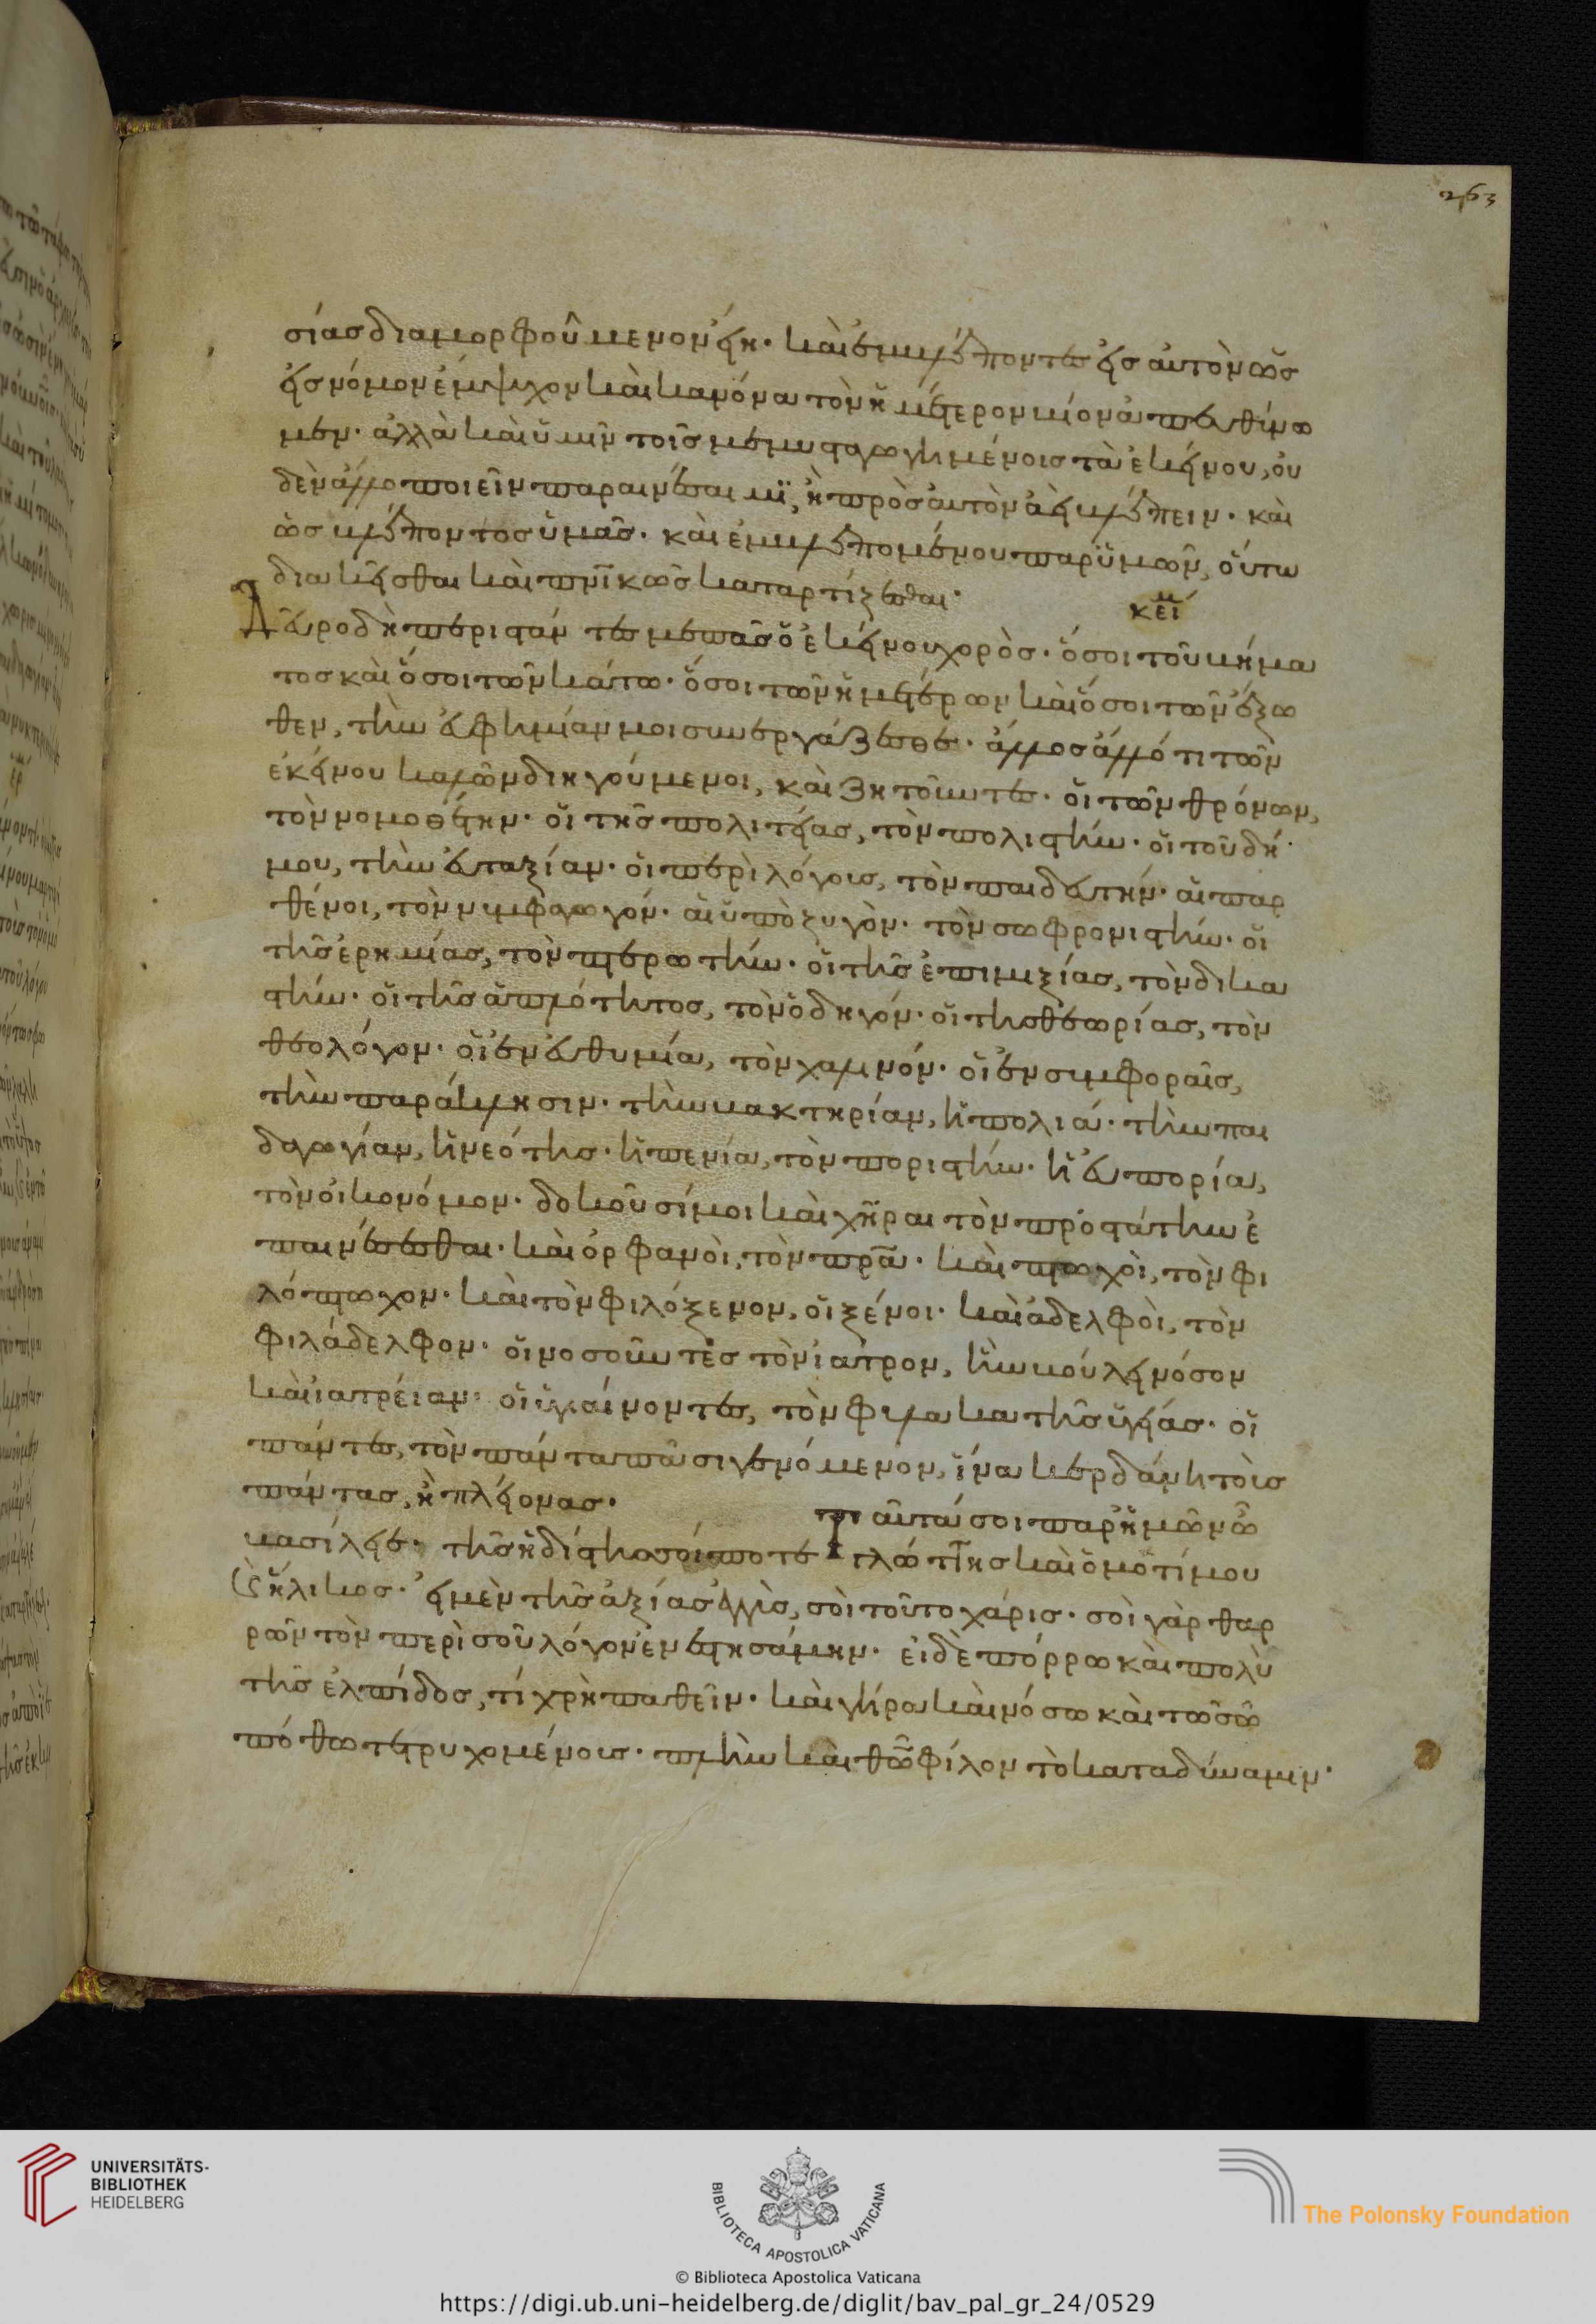 263
σίας διαμορφούμενον εἴη· καὶ ἐμβλέποντες εἰς αὐτὸν ὡς
εἰς νόμον ἔμψυχον καὶ κανόνα τὸν ἡμέτερον βίον ἀπευθύνω
μεν· ἀλλὰ καὶ ὑμῖν τοῖς μεμυσταγωγημένοις τὰ ἐκείνου, οὐ
δὲν ἄλλο ποιεῖν παραινέσαιμϊ, ἢ πρὸς αὐτὸν ἀεὶ βλέπειν· καὶ
ὡς βλέποντος ὑμᾶς· καὶ ἐμβλεπομένου παρ ὑμῶν, οὕτω
διακεῖσθαι καὶ πνικῶς καταρτίζεσθαι·
κείμ
Δεῦρο δὴ περιστάντες με πᾶς ὁ ἐκείνου χορὸς· ὅσοι τοῦ βήμα
τος καὶ ὅσοι τῶν κάτω· ὅσοι τῶν ἡμετέρων καὶ ὅσοι τῶν ἔξω
θεν, τὴν εὐφημίαν μοι συνεργάζεσθε· ἄλλος ἄλλό τι τῶν
ἐκείνου καλῶν διηγούμενοι, καὶ ζητοῦντες· οἱ τῶν θρόνων,
τὸν νομοθέτην· οἱ τῆς πολιτείας, τὸν πολιστήν· οἱ τοῦ δή
μου, τὴν εὐταξίαν· οἱ περὶ λόγους, τὸν παιδευτήν· αἱ παρ
θένοι, τὸν νυμφαγωγόν· αἱ ὑπὸ ζυγὸν· τὸν σωφρονιστήν· οἱ
τῆς ἐρημίας, τὸν πτερωτήν· οἱ τῆς ἐπιμιξίας, τὸν δικα
στήν· οἱ τῆς ἁπλότητος, τὸν ὁδηγόν· οἱ τῆς θεωρίας, τὸν
θεολόγον· οἱ ἐν εὐθυμία, τὸν χαλινόν· οἱ ἐν συμφοραῖς,
τὴν παράκλησιν· τὴν βακτηρίαν, ἡ πολιά· τὴν παι
δαγωγίαν, ἡ νεότης· ἡ πενία, τὸν ποριστήν· ἡ εὐπορία,
τὸν οἰκονόμον· δοκοῦσί μοι καὶ χῆραι τὸν προστάτην ἐ
παινέσεσθαι· καὶ ὀρφανοὶ, τὸν πρα· καὶ πτωχοὶ, τὸν φι
λόπτωχον· καὶ τὸν φιλόξενον, οἱ ξένοι· καὶ ἀδελφοὶ, τὸν
φιλάδελφον· οἱ νοσοῦντες τὸν ἰατρον, ἣν βούλει νόσον
καὶ ἰατρείαν· οἱ ὑγιαίνοντες, τὸν φύλακα τῆς ὑγείας· οἱ
πάντες, τὸν πάντα πᾶσι γενόμενον, ἵνα κερδάνη τοὺς
πάντας, ἢ πλείονας·
Ταῦτά σοι παρ ἡμῶν ὦ
βασίλειε· τῆς ἡδίστης σοί ποτε γλώττης καὶ ὁμοτίμου
καὶ ἥλικος· εἰ μὲν τῆς ἀξίας ἐγγὺς, σοὶ τοῦτο χάρις· σοὶ γὰρ θαρ
ρῶν τὸν περὶ σοῦ λόγον ἐνεστησάμην· εἰ δὲ πόρρω καὶ πολὺ
τῆς ἐλπίδος, τί χρὴ παθεῖν· καὶ γήρα καὶ νόσω καὶ τῶ σῶ
πόθω τετρυχομένους· πλὴν καὶ θῶ φίλον τὸ κατα δύναμιν·
UNIVERSITÄTS-
BIBLIOTHEK
HEIDELBERG
BIBLIOTECA APOSTOLICA VATICANA
The Polonsky Foundation
© Biblioteca Apostolica Vaticana
https://digi.ub.uni-heidelberg.de/diglit/bav_pal_gr_24/0529